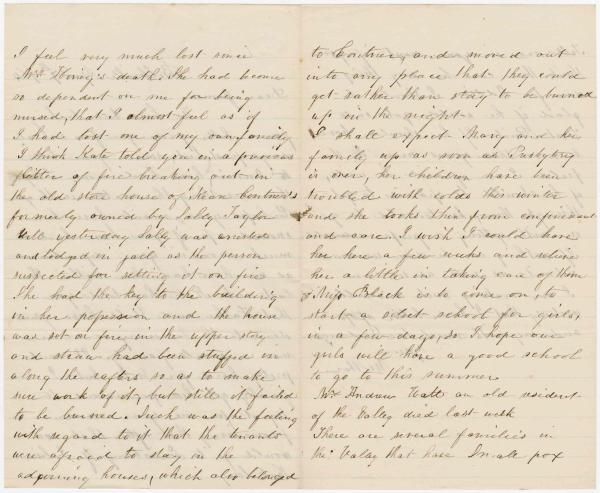 I feel very much lost since
Mrs Honey's death. She had become
so dependent on me for being
nursed, that I almost feel as if
I had lost one of my own family
I think Kate told you in a previous
letter of fire breaking out in
the old store house of Near Contner's
formerly owned by Sally Taylor
Well yesterday Sally was arrested
and lodged in jail as the person
suspected for setting it on fire
She had the key to the building
in her possession and the house
was set on fire in the upper story
and straw had been stuffed in
along the rafters so as to make
sure work of it, but still it failed
to be burned. Such was the feeling
with regard to it that the tenants
were afraid to stay on the
adjoining houses, which also belonged
to Contner, and moved out
into any place that they could
get rather than stay to be burned
up in the night
I shall expect Mary and her
family up as soon as Presbytry
is over, her children have been
troubled with colds this winter
and she looks thin from confinement
and care. I wish I could have
her here a few weeks and relieve
her a little in taking care of them
Miss Black is to come on, to
start a select school for girls,
in a few days, so I hope our
girls will have a good school
to go to this summer
Mrs Andrew Hall an old resident
of the Valley died last week
There are several families in
the Valley that have Small pox